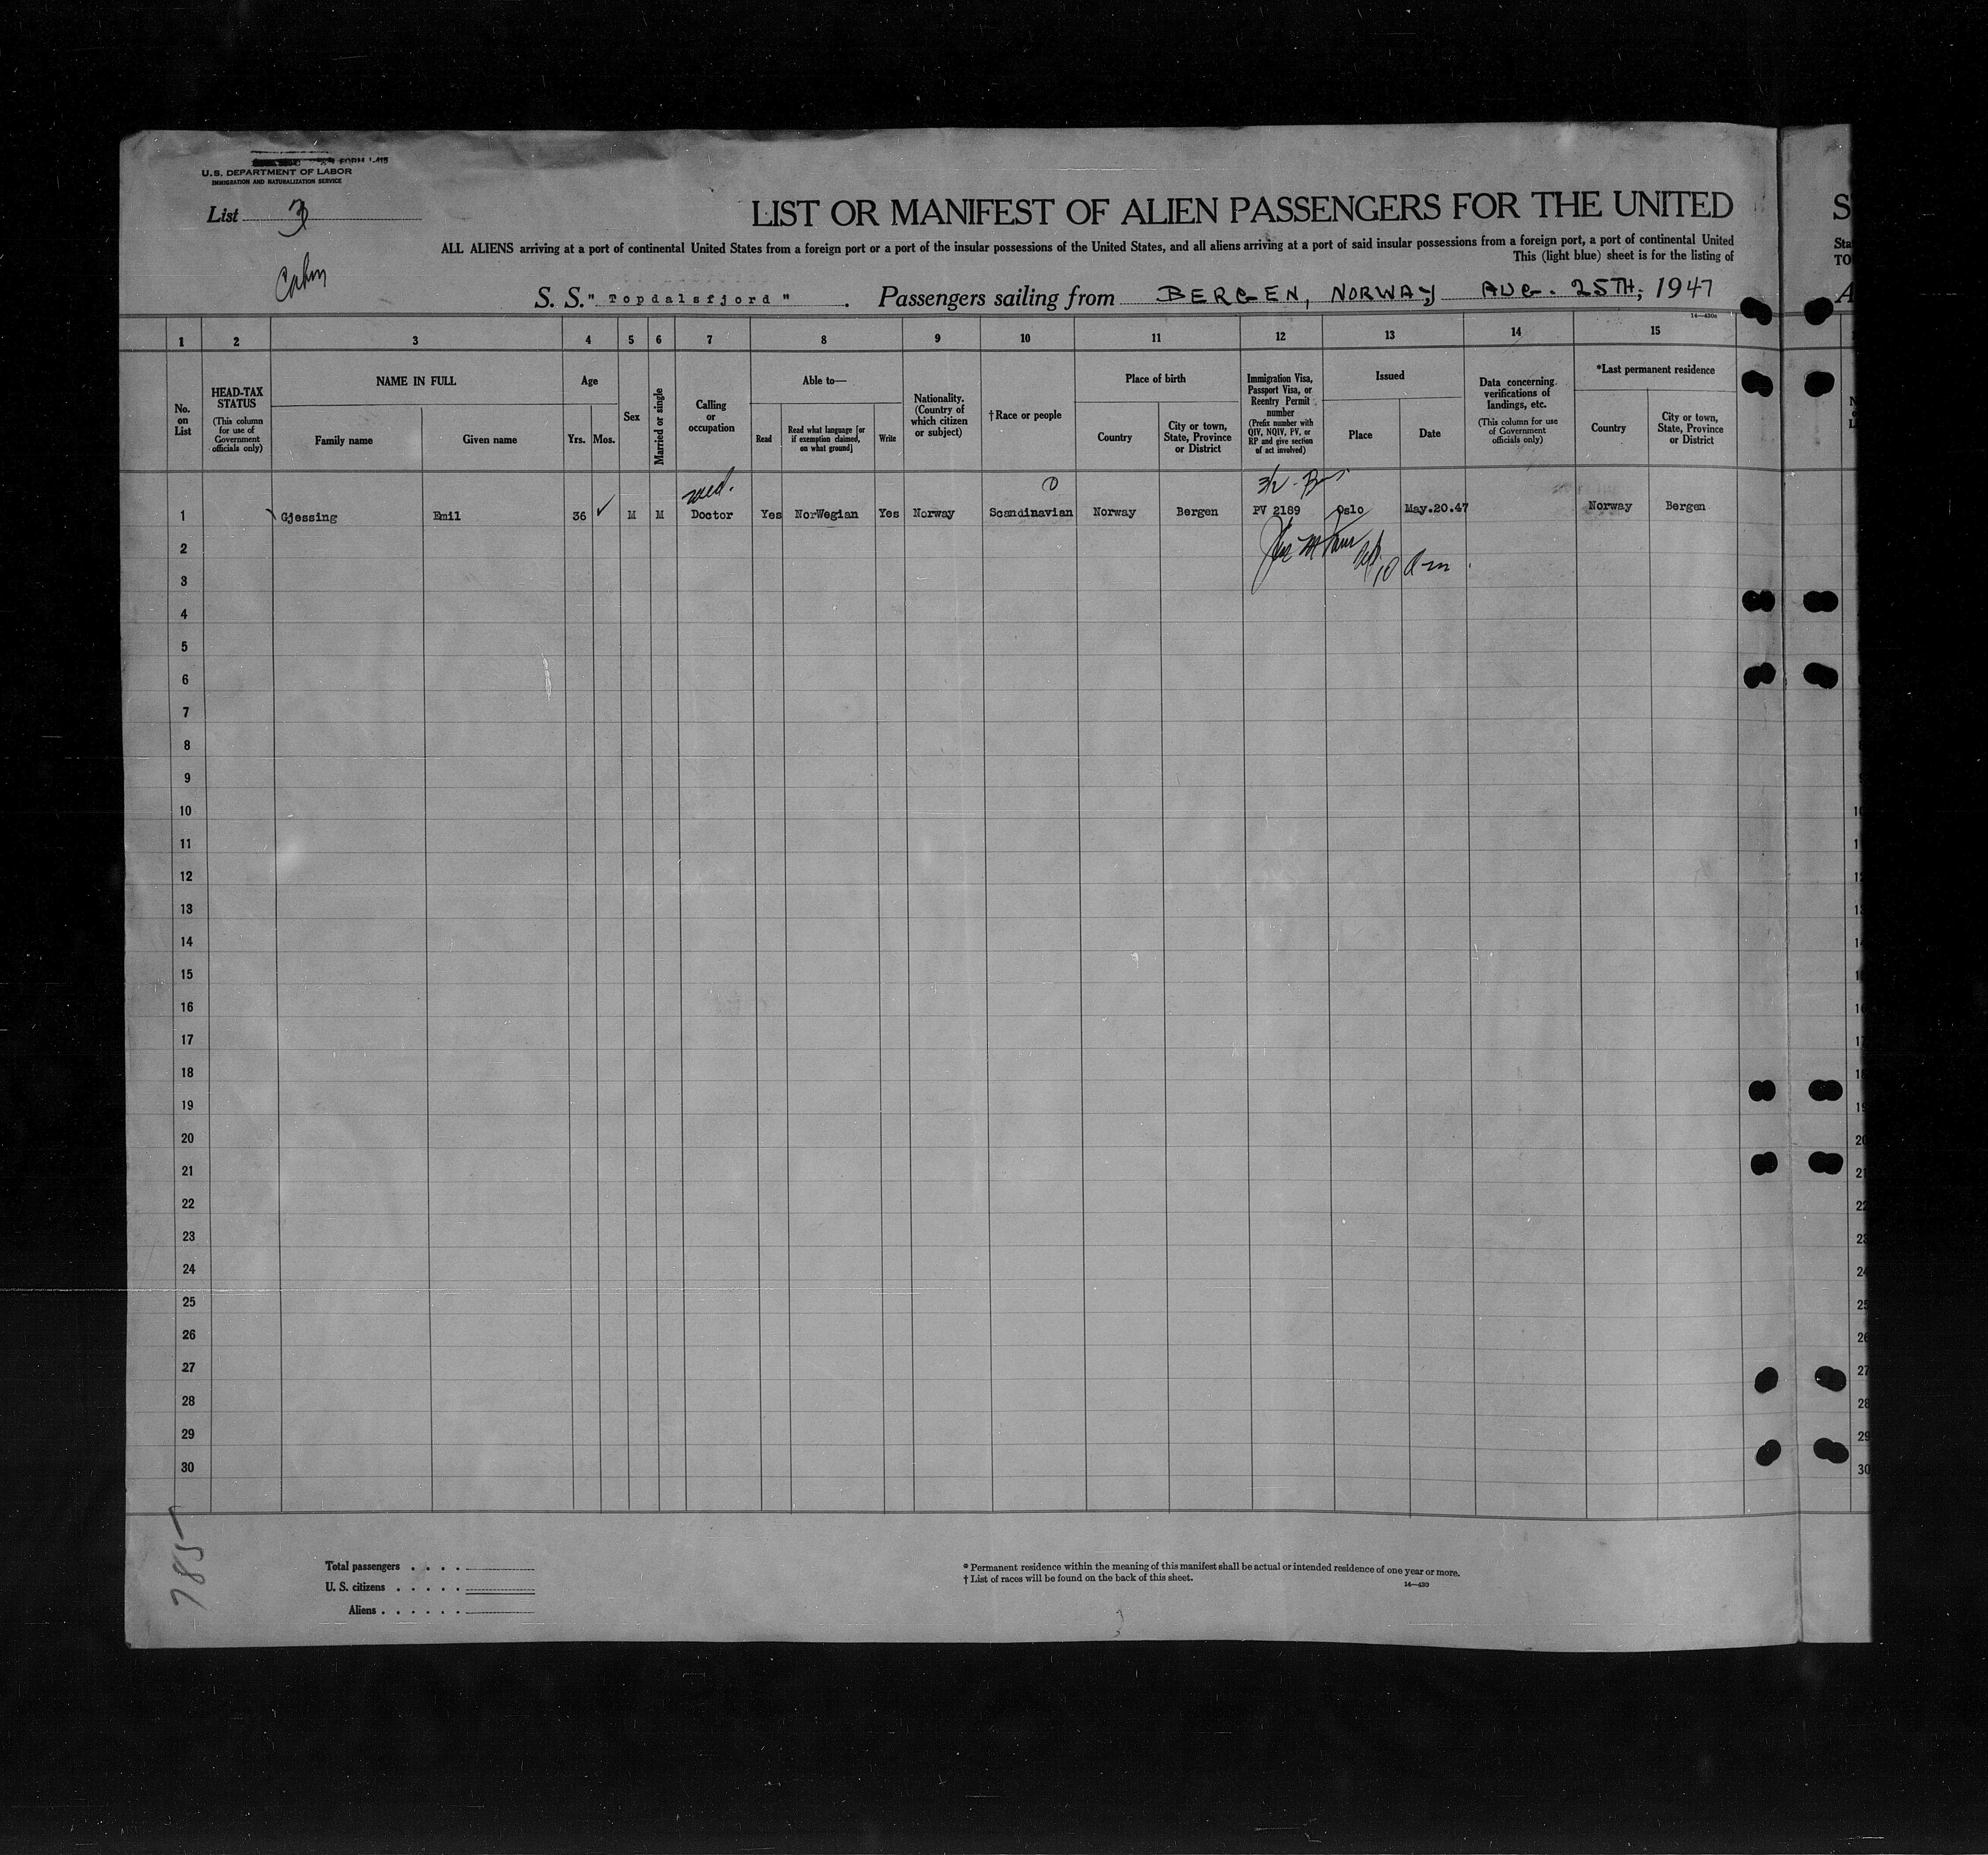 FORM I-415
U.S. DEPARTMENT OF LABOR
IMMIGRATION AND NATURALIZATION SERVICE
List 3
LIST OR MANIFEST OF ALIEN PASSENGERS FOR THE UNITED
S
ALL ALIENS arriving at a port of continental United States from a foreign port or a port of the insular possessions of the United States, and all aliens arriving at a port of said insular possessions from a foreign port, a port of continental United
Sta
This (light blue) sheet is for the listing of
TO
S. S. "Topdalsfjord". Passengers sailing from BERGEN, NORWAY, AUG. 25TH, 1947
A
14—430a
1 2 3 4 5 6 7 8 9 10 11 12 13 14 15
No. on List
HEAD-TAX STATUS
(This column for use of Government officials only)
NAME IN FULL
Family name
Given name
Age
Yrs. Mos.
Sex
Married or single
Calling or occupation
Able to—
Read
Read what language [or if exemption claimed, on what ground]
Write
Nationality. (Country of which citizen or subject)
†Race or people
Place of birth
Country
City or town, State, Province or District
Immigration Visa, Passport Visa, or Reentry Permit number
(Prefix number with QIV, NQIV, PV, or RP and give section of act involved)
Issued
Place
Date
Data concerning verifications of landings, etc.
(This column for use of Government officials only)
*Last permanent residence
Country
City or town, State, Province or District
med.
1 Gjessing Emil 36 ✓ M M Doctor Yes NorWegian Yes Norway Scandinavian Norway Bergen PV 2189 Oslo May.20.47 Norway Bergen
2
10 am
3
4
5
6
7
8
9
10
11
12
13
14
15
16
17
18
19
20
21
22
23
24
25
26
27
28
29
30
785
Total passengers . . . .
U. S. citizens . . . . .
Aliens . . . . . .
* Permanent residence within the meaning of this manifest shall be actual or intended residence of one year or more.
† List of races will be found on the back of this sheet.
14—430